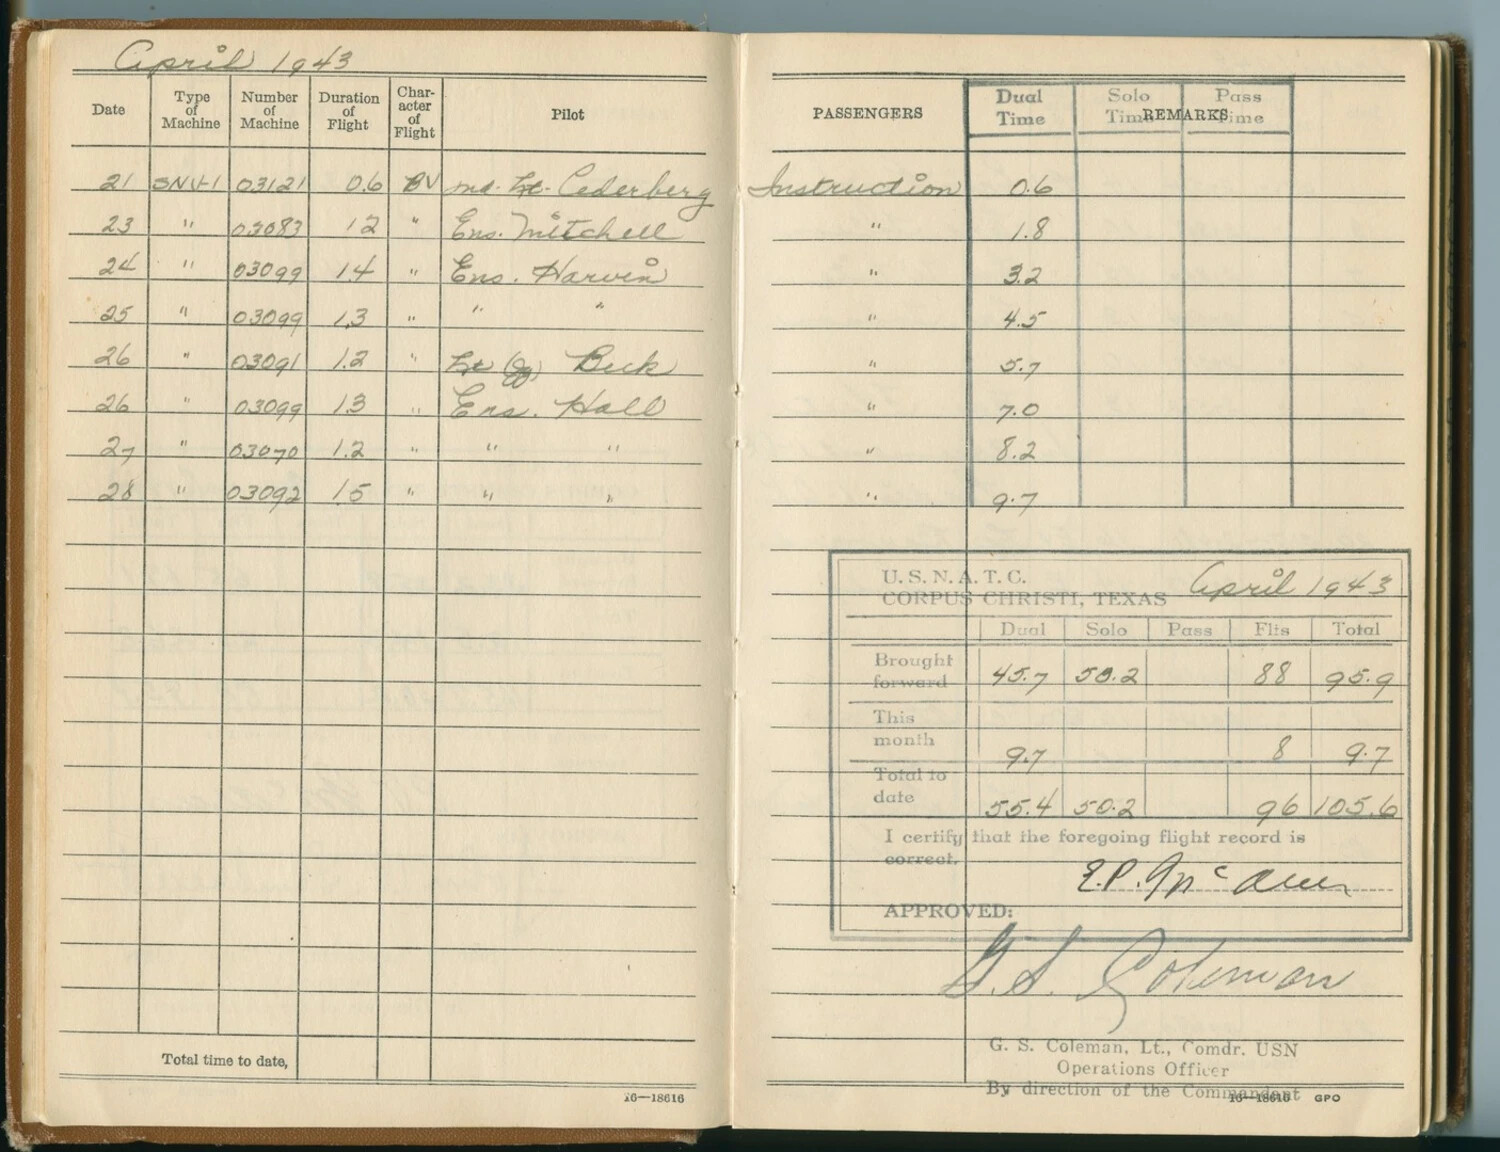 April 1943
Date Type of Machine Number of Machine Duration of Flight Char-acter of Flight Pilot PASSENGERS Dual Time Solo Time Pass Time REMARKS
21 SNV-1 03121 0.6 BV Lt. Cederberg Instruction 0.6
23 " 03083 1 2 " Ens. Mitchell " 1.8
24 " 03099 1.4 " Ens. Harvin " 3.2
25 " 03099 1.3 " " " " 4.5
26 " 03091 1.2 " Lt (jg) Beck " 5.7
26 " 03099 1.3 " Ens. Hall " 7.0
27 " 03070 1.2 " " " " 8.2
28 " 03092 1 5 " " " " 9.7
U. S. N. A. T. C.
CORPUS CHRISTI, TEXAS April 1943
Dual Solo Pass Flts Total
Brought forward 45.7 50.2 88 95.9
This month 9.7 8 9.7
Total to date 55.4 50.2 96 105.6
I certify that the foregoing flight record is
correct.
E.P.
APPROVED:
G. S. Coleman
G. S. Coleman, Lt., Comdr. USN
Operations Officer
By direction of the Commandant
Total time to date,
16—18616
16—18616 GPO